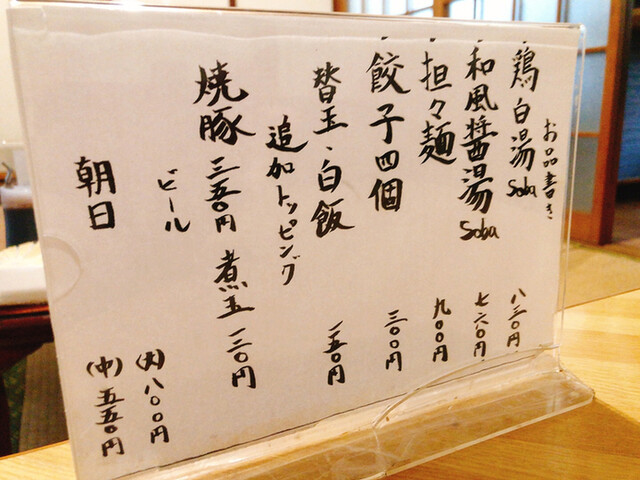 お品書き
・鶏白湯Soba 八三〇円
・和風醤湯Soba 七六〇円
・担々麺 九〇〇円
・餃子四個 三〇〇円
替玉、白飯 一五〇円
追加トッピング
焼豚 三五〇円 煮玉 一二〇円
ビール
朝日 (大)八〇〇円
(中)五五〇円